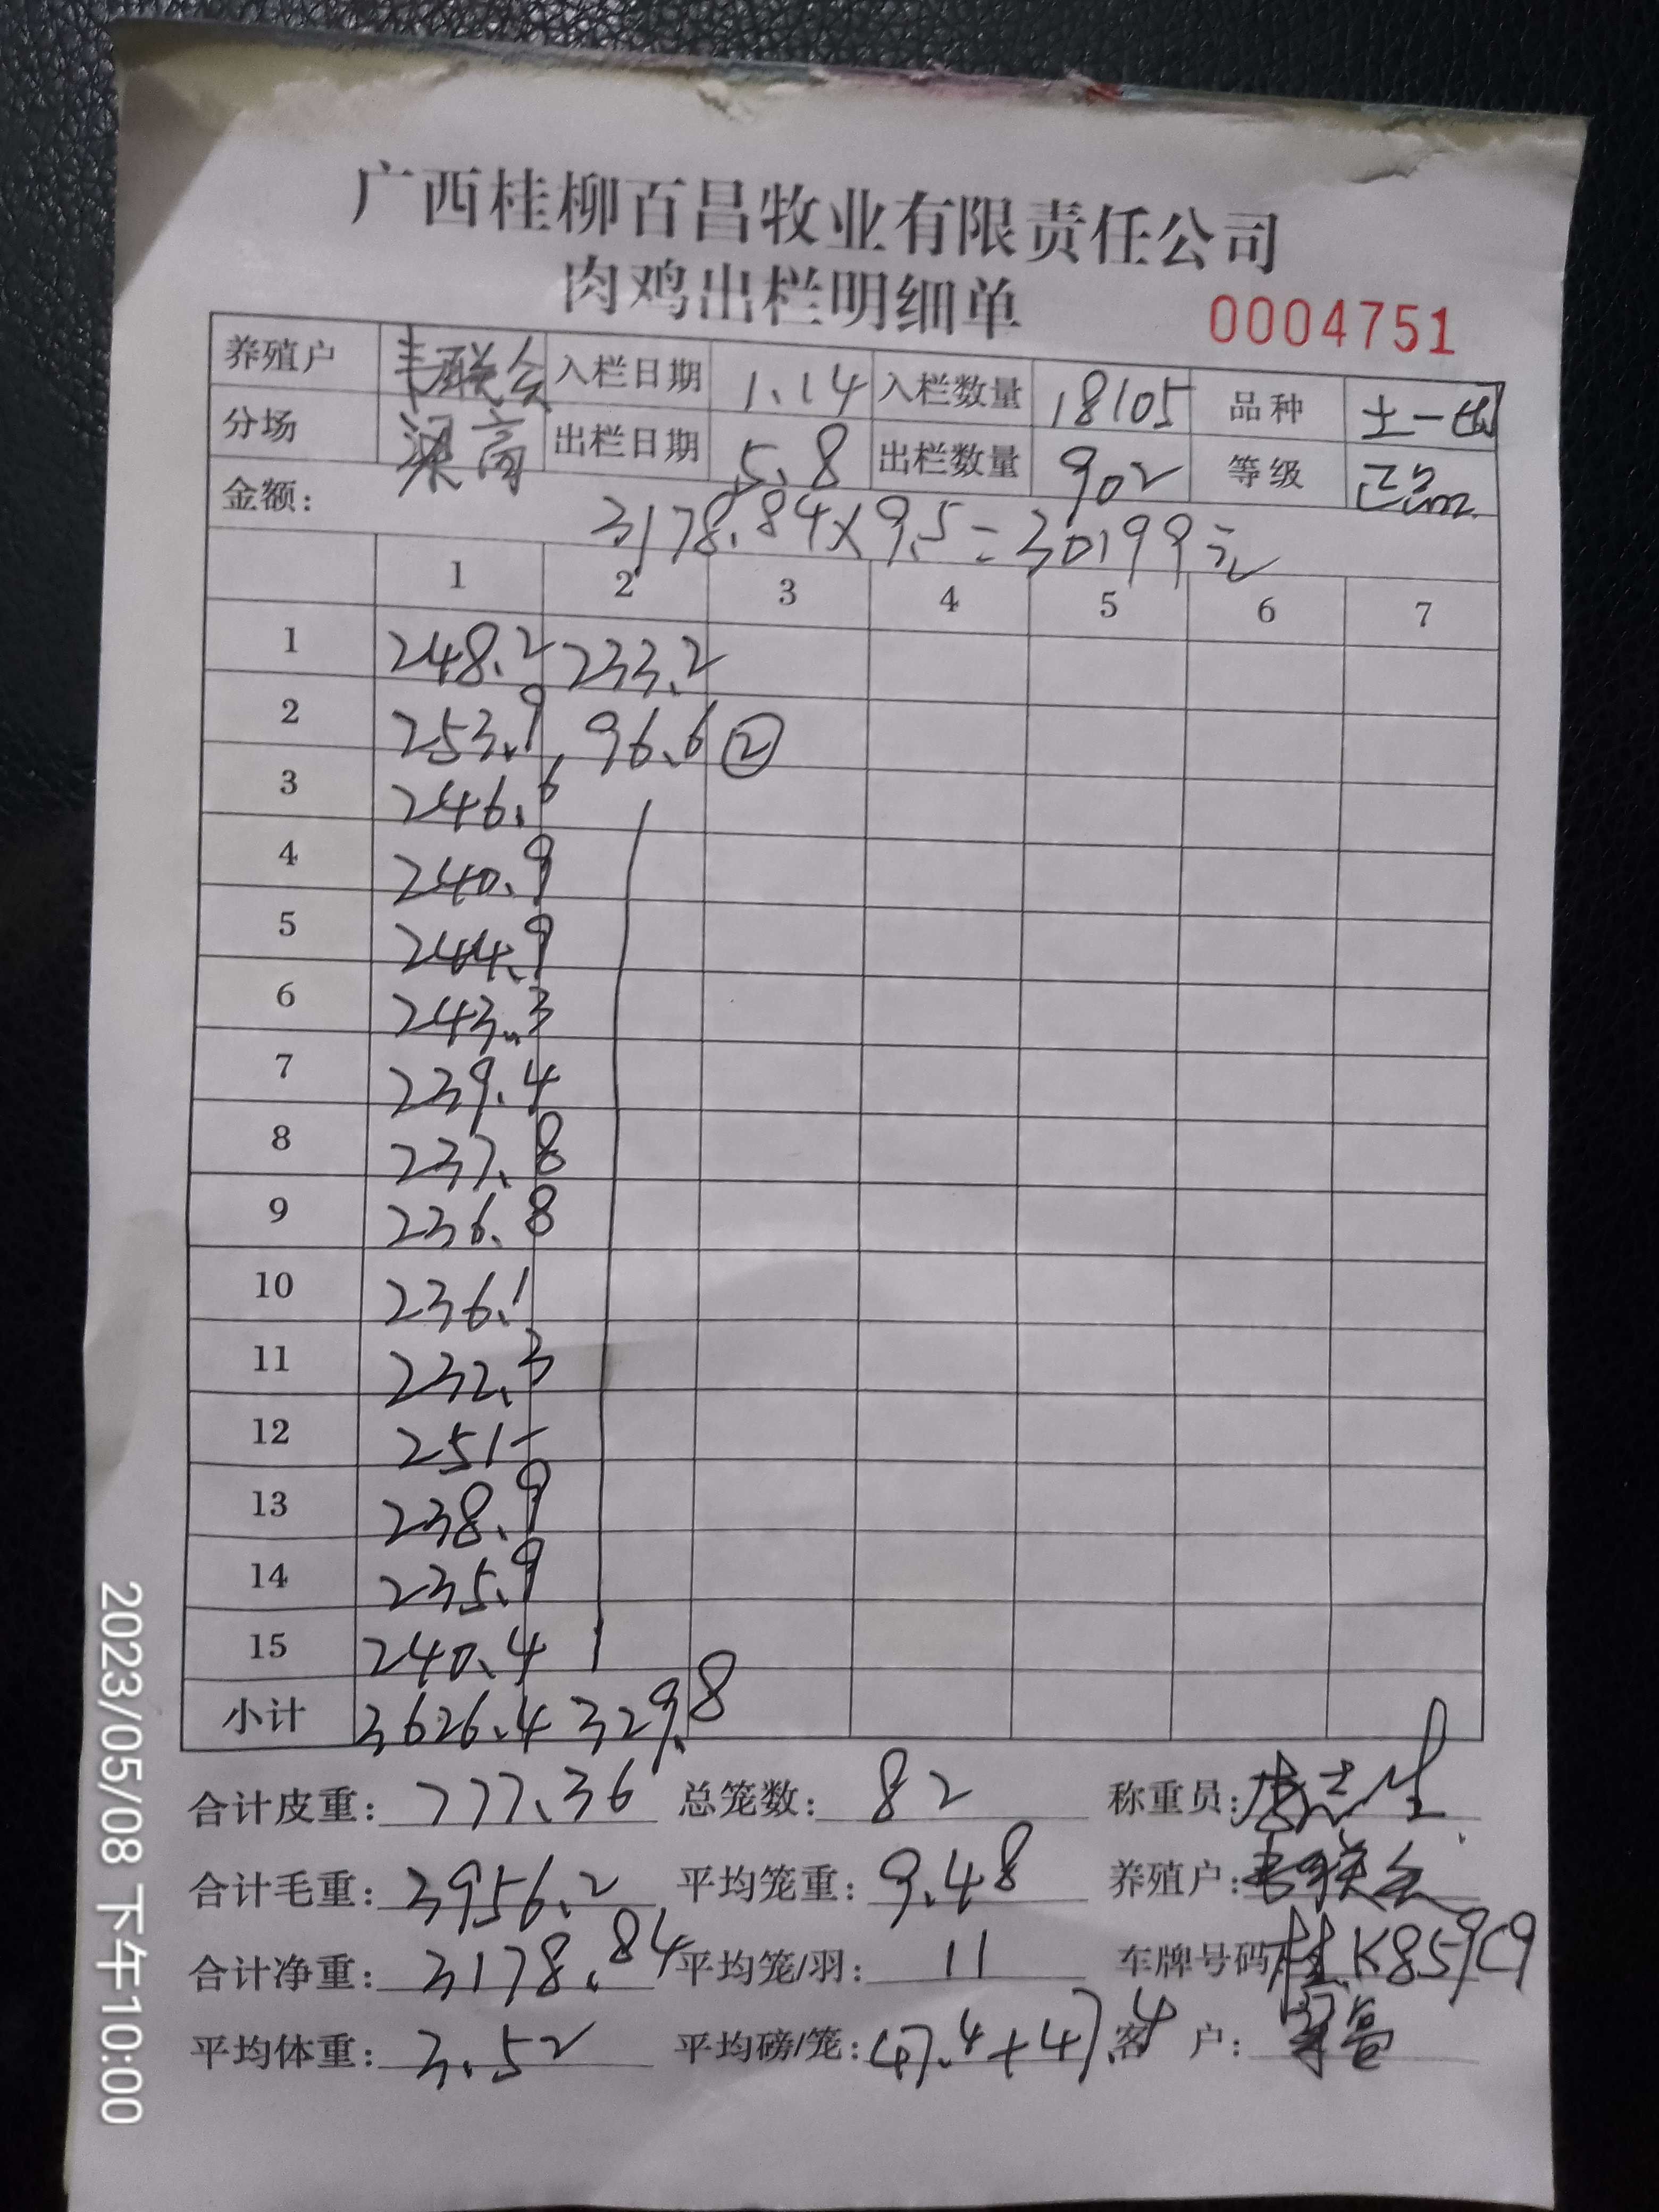 广西桂柳百昌牧业有限责任公司
肉鸡出栏明细单 0004751
养殖户 韦联会 入栏日期 1.14 入栏数量 18105 品种 土一
分场 梁高 出栏日期 5.8 出栏数量 902 等级 正品
金额: 3178.84×9.5=30199元
1 2 3 4 5 6 7
1 248.2 233.2
2 253.9 96.6 ②
3 246.6
4 240.9
5 244.9
6 243.3
7 239.4
8 237.8
9 236.8
10 236.1
11 232.3
12 251-
13 238.9
14 235.9
15 240.4
小计 3626.4 329.8
合计皮重: 777.36 总笼数: 82 称重员:
合计毛重: 3956.2 平均笼重: 9.48 养殖户: 韦联会
合计净重: 3178.84 平均笼/羽: 11 车牌号码 桂K859C9
平均体重: 3.52 平均磅/笼: 47.4+47.4 客 户:
2023/05/08 下午10:00